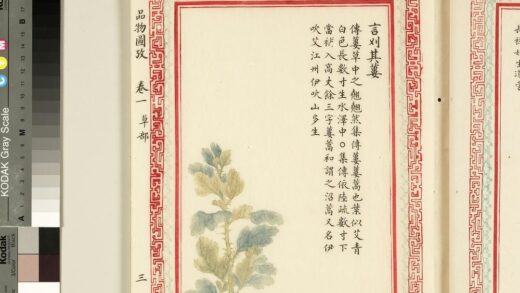 言刈其蔞
傳蔞草中之翹翹然集傳蔞蔞蒿也葉似艾青
白色長數寸生水澤中○集傳依陸疏數寸下
當補入高丈餘三字蔞蒿和謂之沼蒿又名伊
吹艾江州伊吹山多生
品物圖攷 卷一 草部 三
KODAK Gray Scale
C Y M
Kodak
A
M